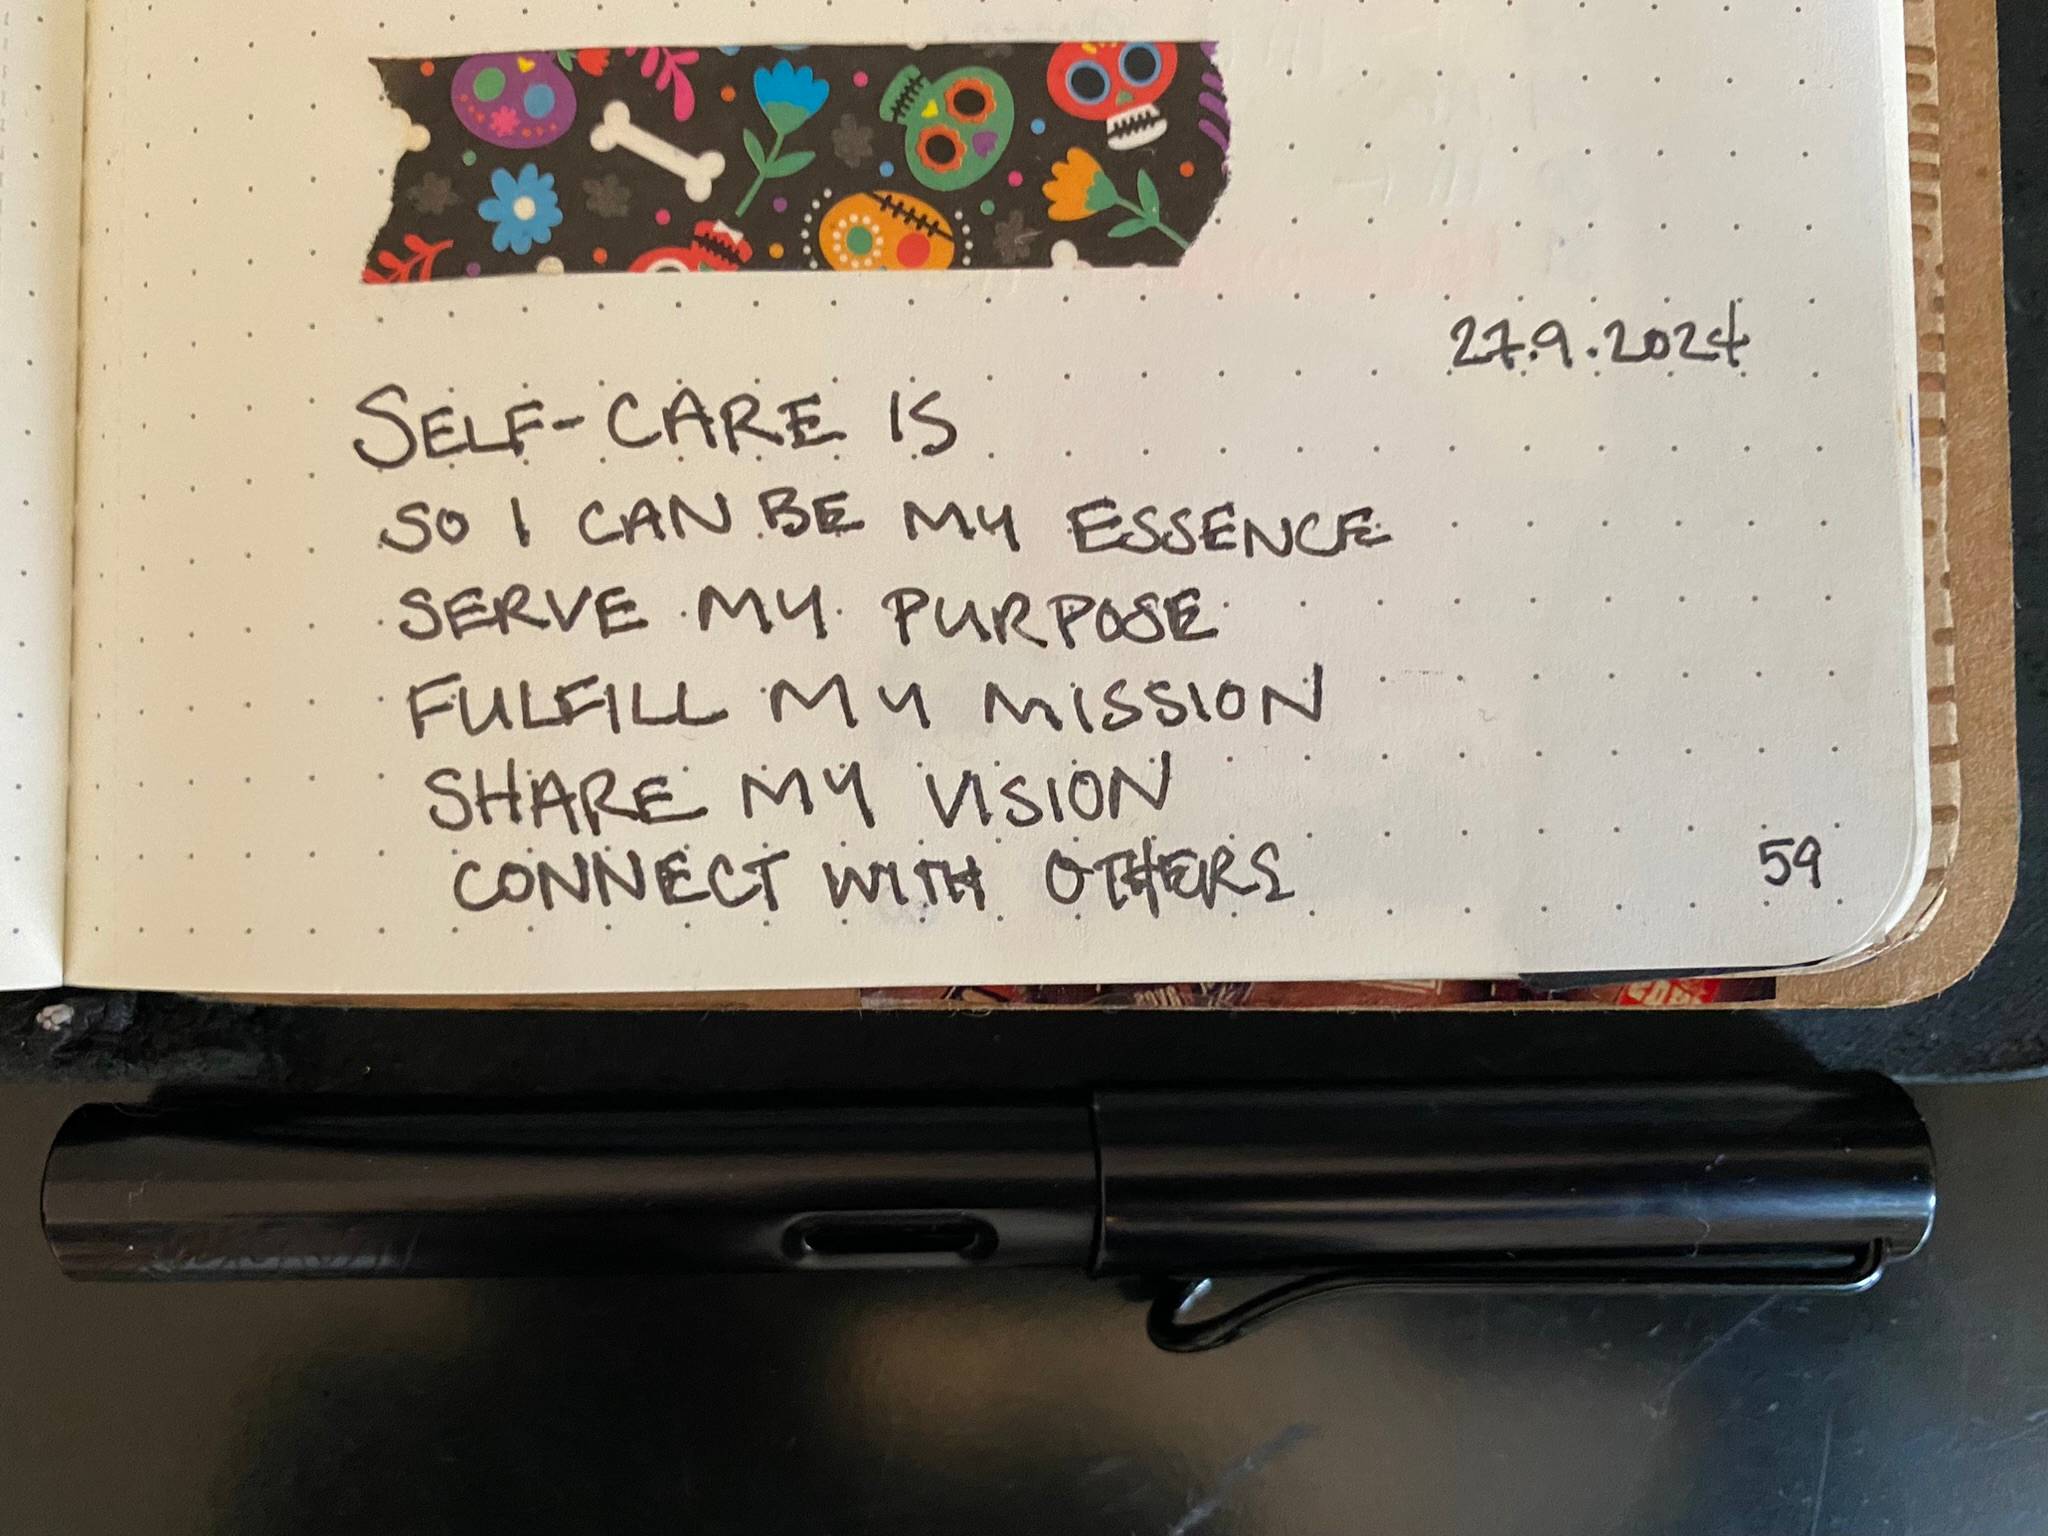 27.9.2024
SELF-CARE IS
SO I CAN BE MY ESSENCE
SERVE MY PURPOSE
FULFILL MY MISSION
SHARE MY VISION
CONNECT WITH OTHERS
59